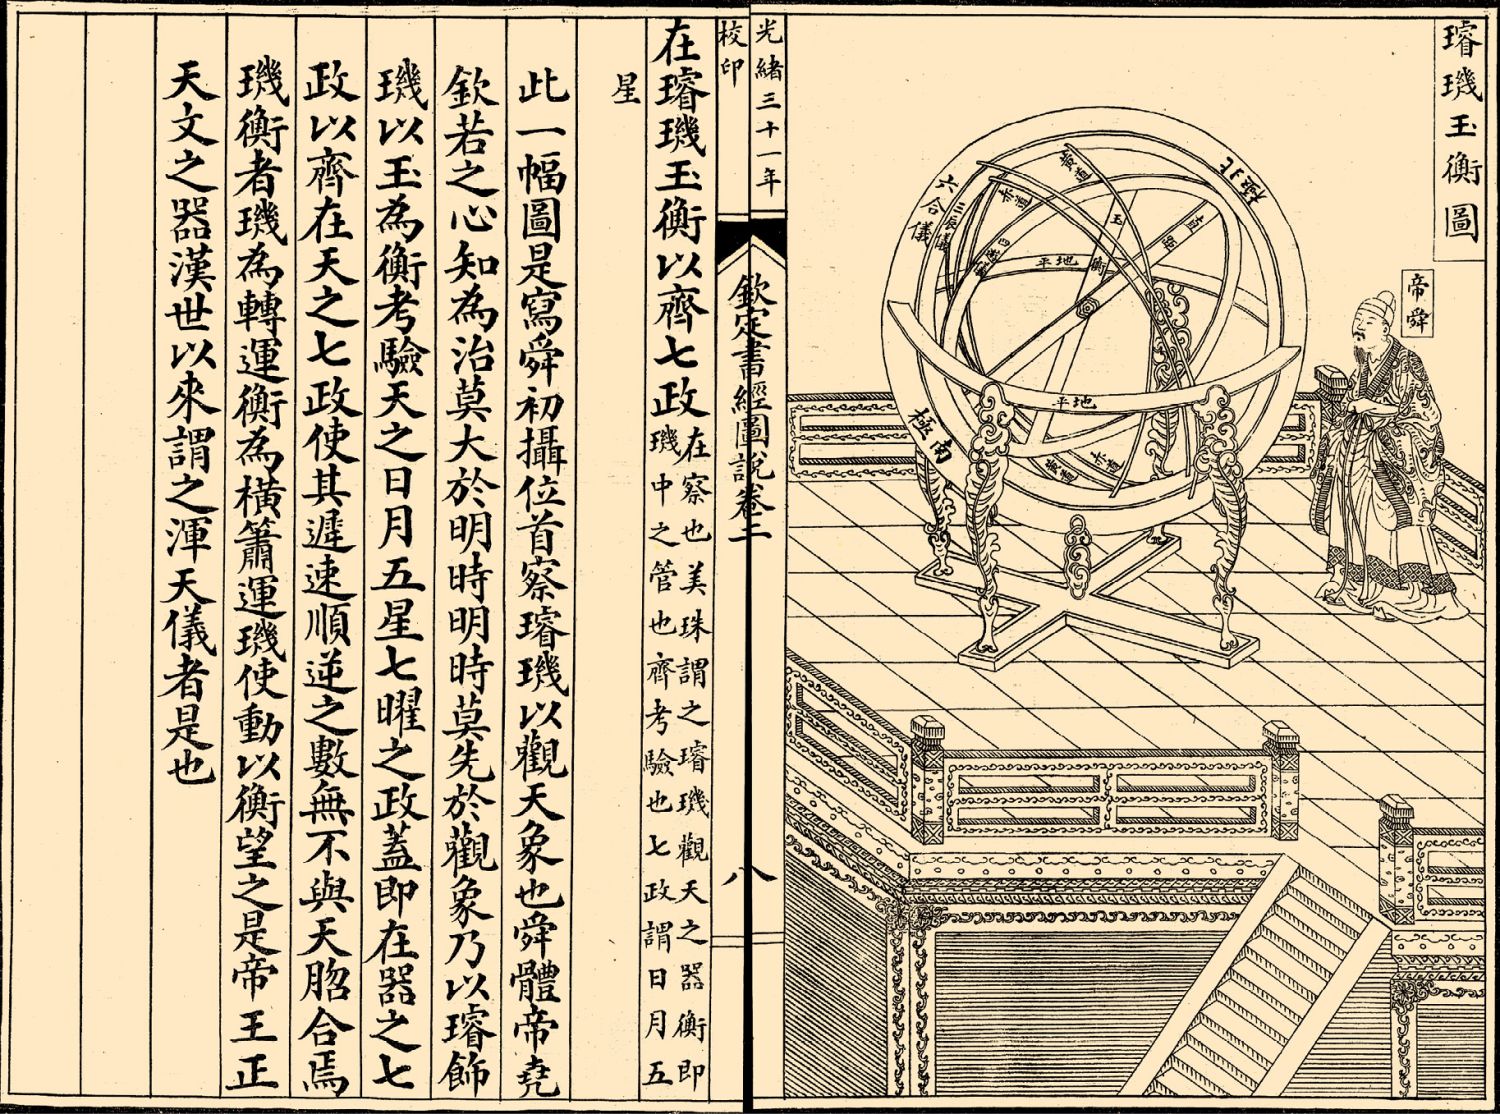 璿璣玉衡圖
帝舜
北極
六合儀
三辰儀
四遊儀
黃道
赤道
玉
衡
直距
地平
地平
南極
赤道
黃道
光緒三十一年
校印
欽定書經圖說卷二
八
在璿璣玉衡以齊七政
在察也美珠謂之璿璣觀天之器衡即
璣中之管也齊考驗也七政謂日月五
星
此一幅圖是寫舜初攝位首察璿璣以觀天象也舜體帝堯
欽若之心知為治莫大於明時明時莫先於觀象乃以璿飾
璣以玉為衡考驗天之日月五星七曜之政蓋即在器之七
政以齊在天之七政使其遲速順逆之數無不與天脗合焉
璣衡者璣為轉運衡為橫簫運璣使動以衡望之是帝王正
天文之器漢世以來謂之渾天儀者是也